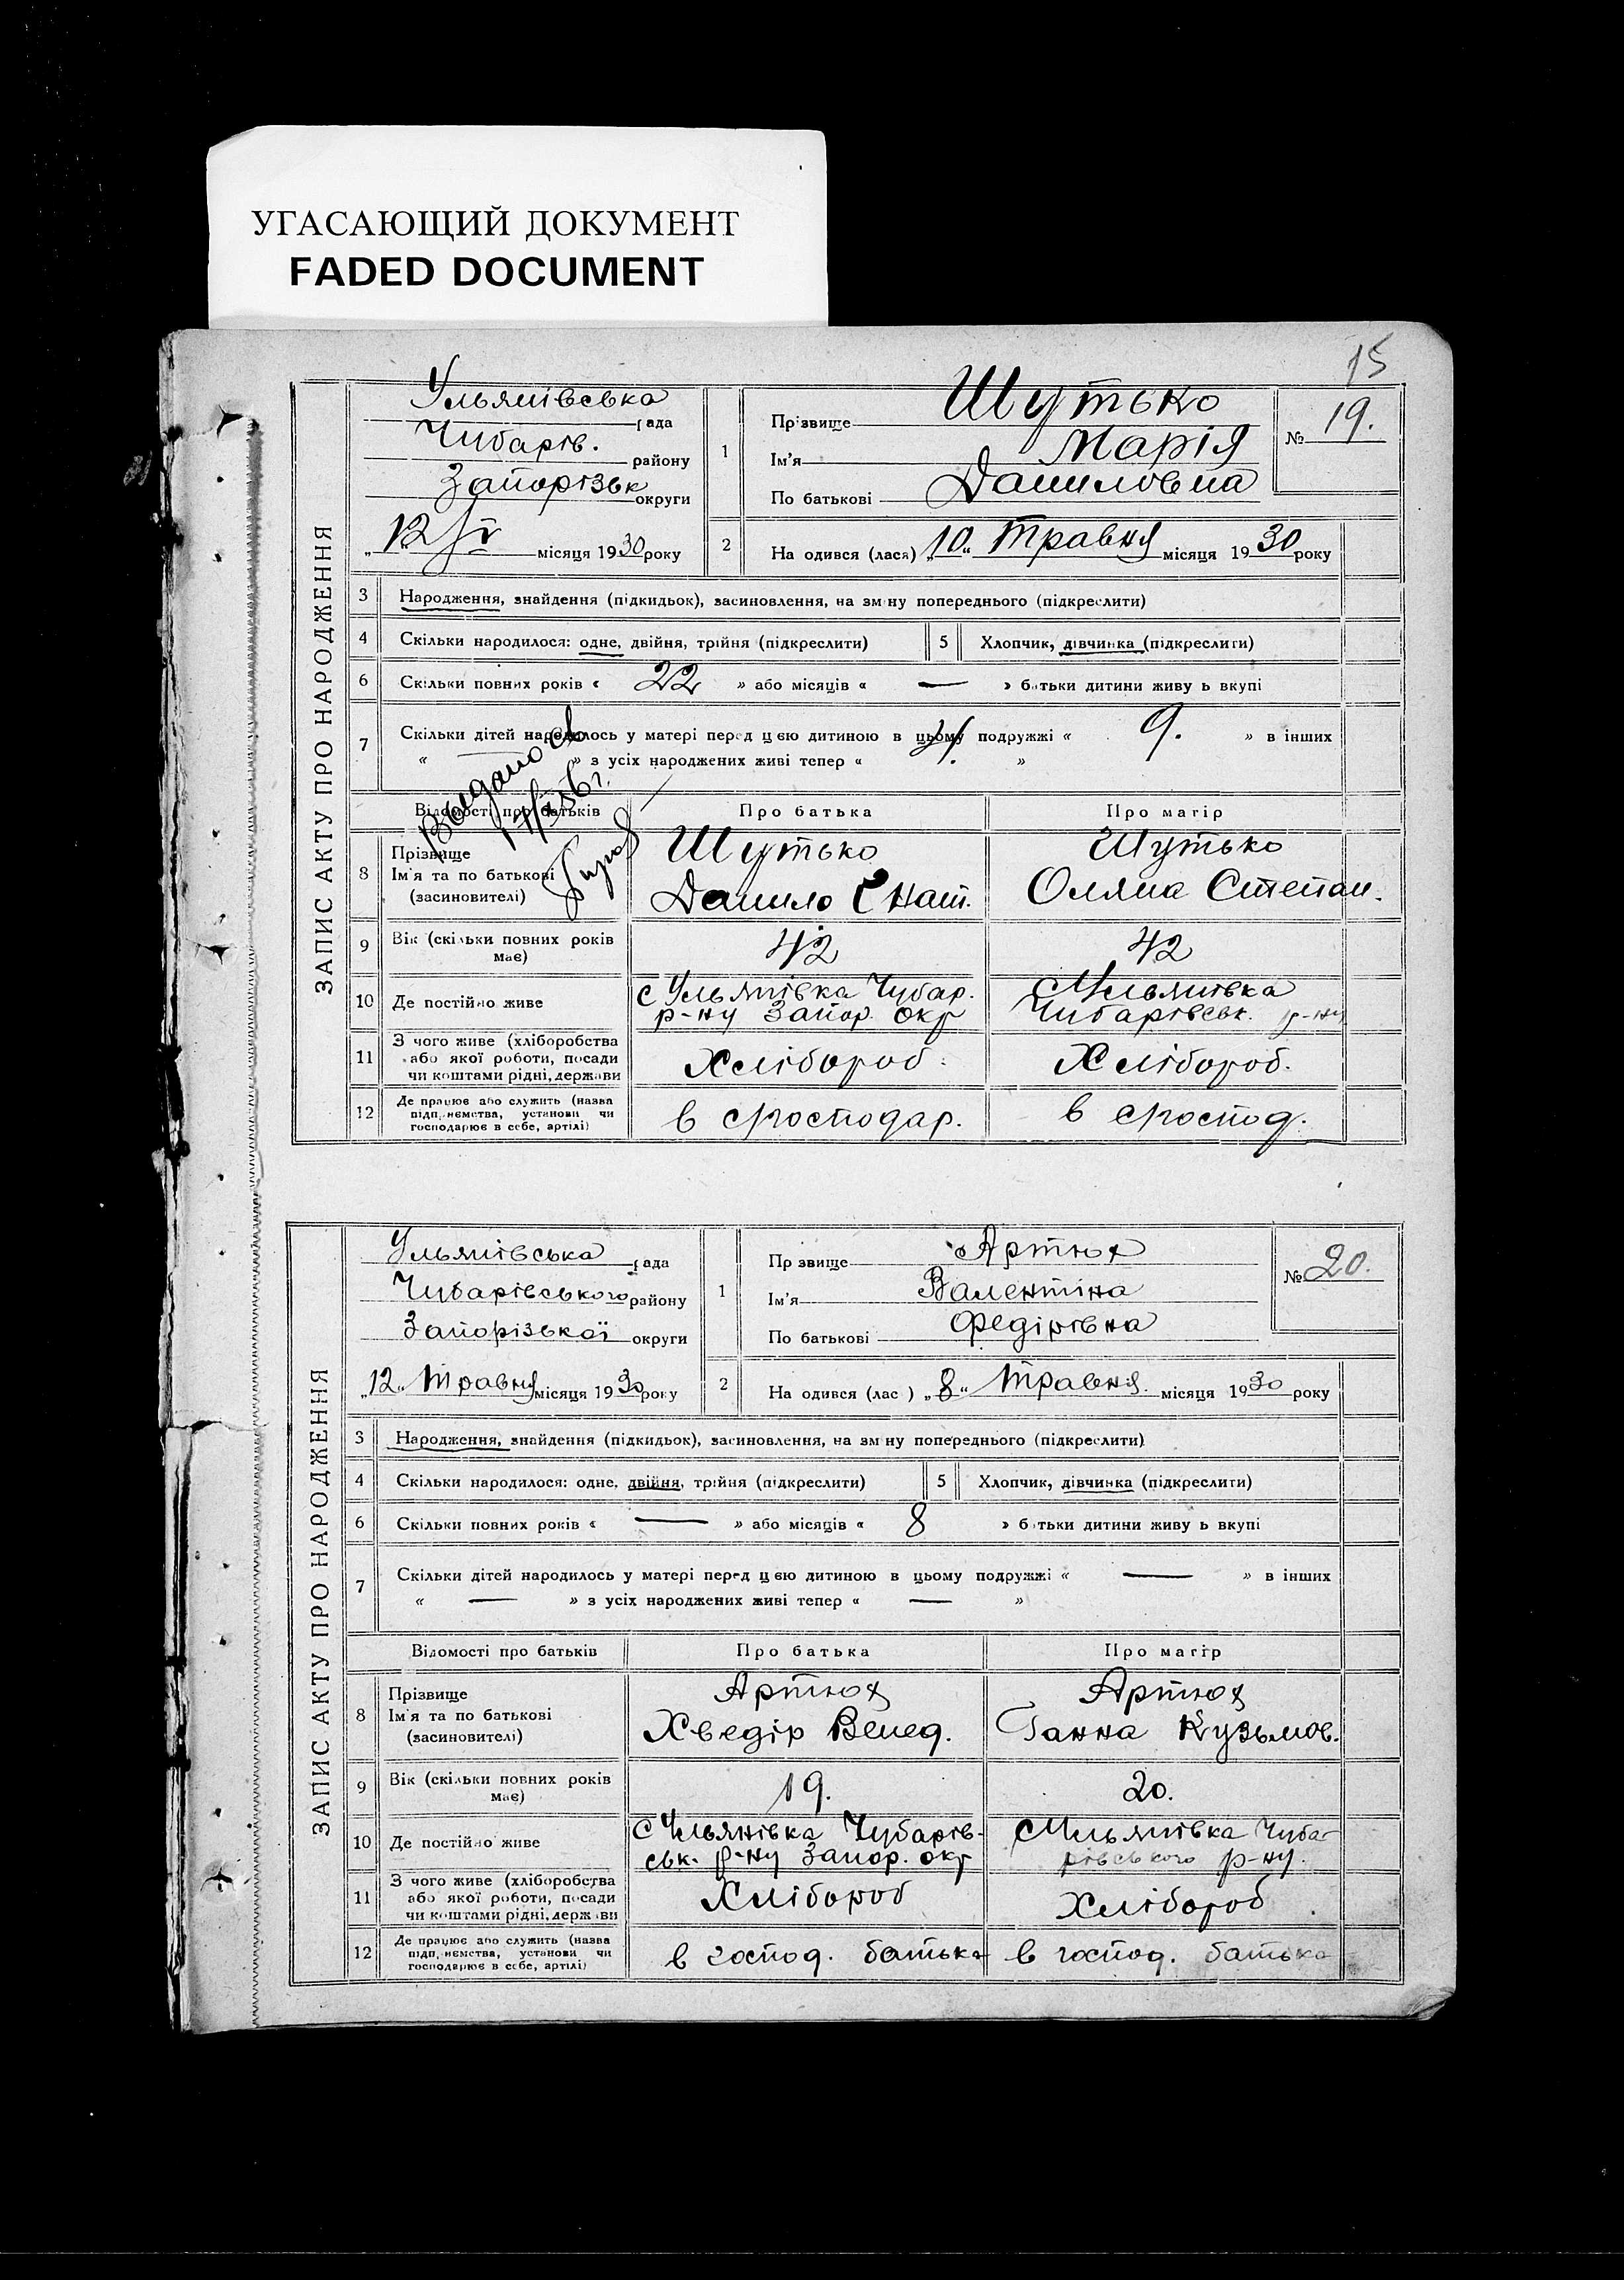 УГАСАЮЩИЙ ДОКУМЕНТ
FADED DOCUMENT
15
ЗАПИС АКТУ ПРО НАРОДЖЕННЯ
Ульянівська рада
Чубарів. району
Запорізьк округи
„12 V місяця 1930 року
1
Прізвище Шутько
Ім'я Марія
По батькові Даниловна
№ 19.
2
На одився (лася) „10“ Травня місяця 1930 року
3 Народження, знайдення (підкидьок), засиновлення, на зміну попереднього (підкреслити)
4 Скільки народилося: одне, двійня, трійня (підкреслити) 5 Хлопчик, дівчинка (підкреслити)
6 Скільки повних років « 22 » або місяців « — » батьки дитини живу ь вкупі
7 Скільки дітей народилось у матері перед цією дитиною в цьому подружжі « 9. » в інших
« » з усіх народжених живі тепер « 4. »
Выдано св
Відомості про батьків Про батька Про матір
8 Прізвище
Ім'я та по батькові
(засиновителі)
Шутько
Данило Гнат.
Шутько
Оляна Степан.
9 Вік (скільки повних років має) 42 42
10 Де постійно живе
с Ульянівка Чубар.
р-ну Запор. окр
с Ульянівка
Чубарівськ. р-ну
11 З чого живе (хліборобства
або якої роботи, посади
чи коштами рідні, держави
Хлібороб. Хлібороб.
12 Де працює або служить (назва
підприємства, установи чи
господарює в себе, артілі)
в господар. в господ.
ЗАПИС АКТУ ПРО НАРОДЖЕННЯ
Ульянівська рада
Чубарівського району
Запорізької округи
„12“ Травня місяця 1930 року
1
Пр звище Артюх
Ім'я Валентіна
По батькові Федірівна
№ 20.
2
На одився (лас ) „8“ Травня. місяця 1930 року
3 Народження, знайдення (підкидьок), засиновлення, на зміну попереднього (підкреслити)
4 Скільки народилося: одне, двійня, трійня (підкреслити) 5 Хлопчик, дівчинка (підкреслити)
6 Скільки повних років « — » або місяців « 8 » батьки дитини живу ь вкупі
7 Скільки дітей народилось у матері перед цією дитиною в цьому подружжі « — » в інших
« — » з усіх народжених живі тепер « — »
Відомості про батьків Про батька Про матір
8 Прізвище
Ім'я та по батькові
(засиновителі)
Артюх
Хведір Венед.
Артюх
Ганна Кузьмов.
9 Вік (скільки повних років має) 19. 20.
10 Де постійно живе
с Ульянівка Чубарів-
ськ. р-ну Запор. окр
с Ульянівка Чуба-
рівського р-ну.
11 З чого живе (хліборобства
або якої роботи, посади
чи коштами рідні, держави
Хлібороб Хлібороб
12 Де працює або служить (назва
підприємства, установи чи
господарює в себе, артілі)
в господ. батька в господ. батька